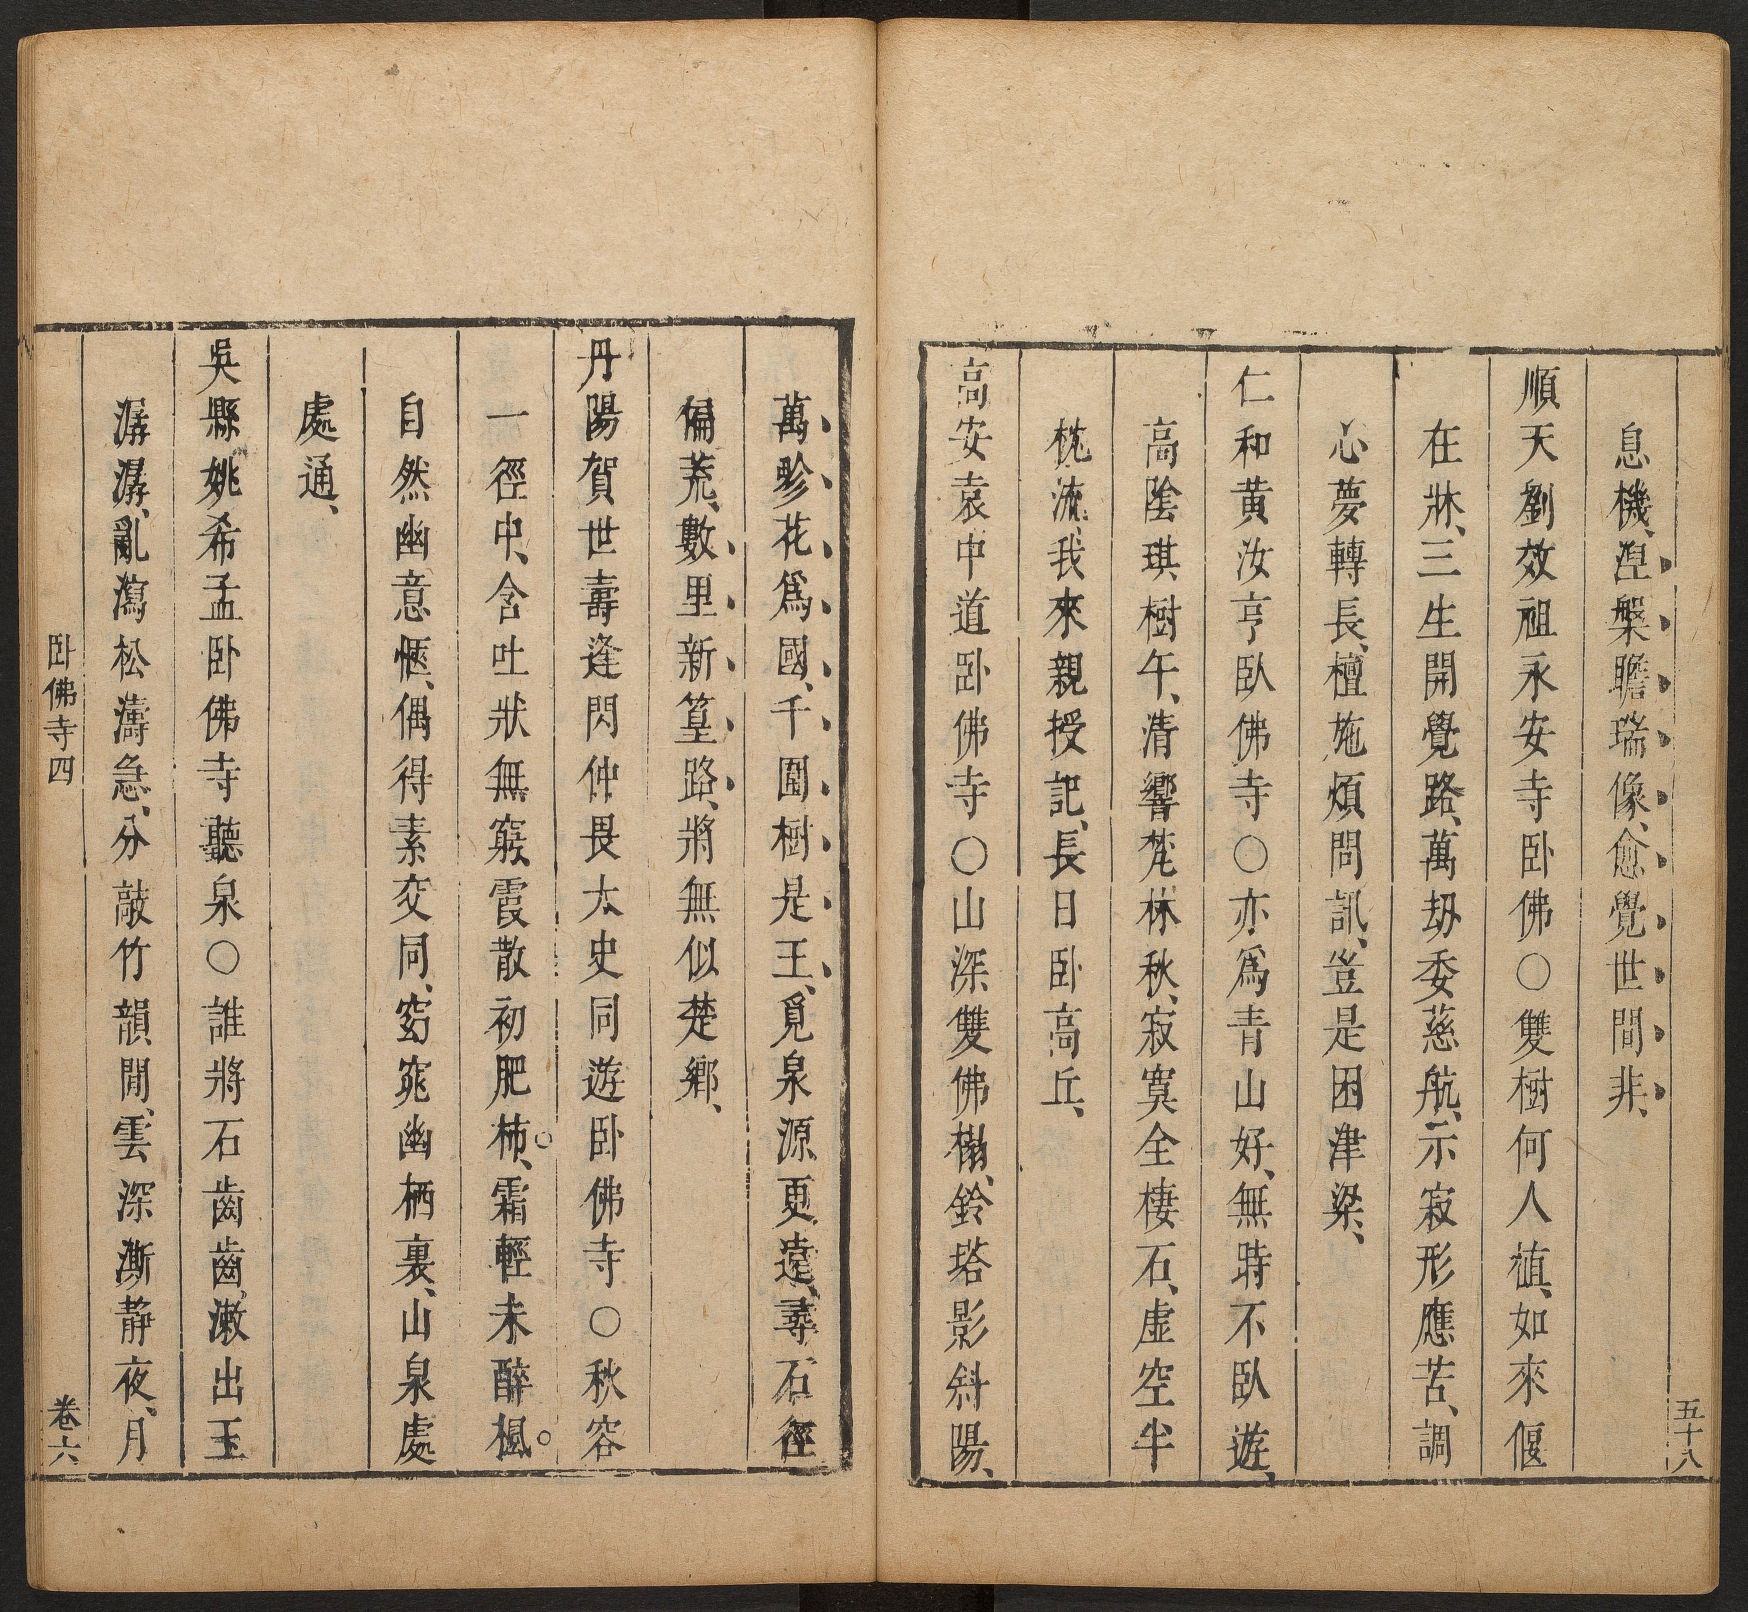 五十八
息機、涅槃瞻瑞像、愈覺世間非、
順天劉效祖永安寺卧佛○雙樹何人植、如來偃
在牀、三生開覺路、萬刼委慈航、示寂形應苦、調
心夢轉長、檀施煩問訊、豈是困津梁、
仁和黃汝亨臥佛寺○亦爲青山好、無時不臥遊、
高陰琪樹午、清響梵林秋、寂寞全棲石、虛空半
枕流、我來親授記、長日卧高丘、
高安袁中道卧佛寺○山深雙佛榻、鈴塔影斜陽、
萬畛花爲國、千圍樹是王、覓泉源更遠、尋石徑
偏荒、數里新篁路、將無似楚鄉、
丹陽賀世壽逢閃仲畏太史同遊卧佛寺○秋容
一徑中、含吐狀無窮、霞散初肥柿、霜輕未醉楓。
自然幽意愜、偶得素交同、窈窕幽栖裏、山泉處
處通、
吳縣姚希孟卧佛寺聽泉○誰將石齒齒、漱出玉
潺潺、亂瀉松濤急、分敲竹韻閒、雲深漸静夜、月
卧佛寺四
卷六